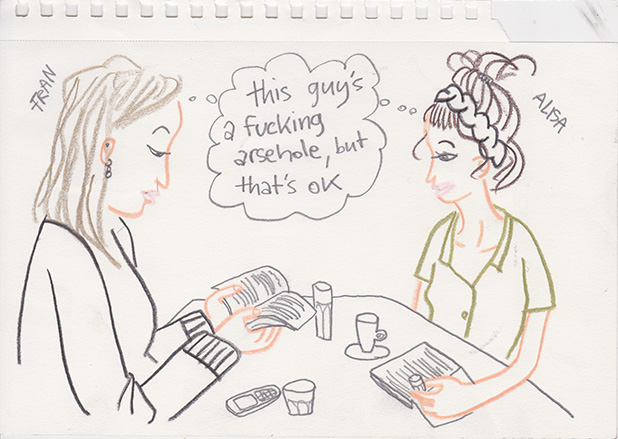 TRAN
this guy's
a fucking
arsehole, but
that's ok
ALISA